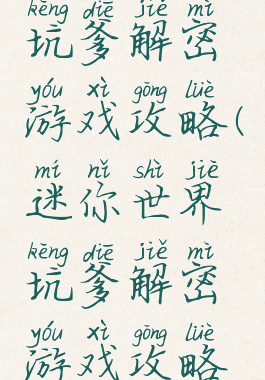 kēng diē jiě mì
坑爹解密
yóu xì gōng lüè
游戏攻略(
mí nǐ shì jiè
迷你世界
kēng diē jiě mì
坑爹解密
yóu xì gōng lüè
游戏攻略